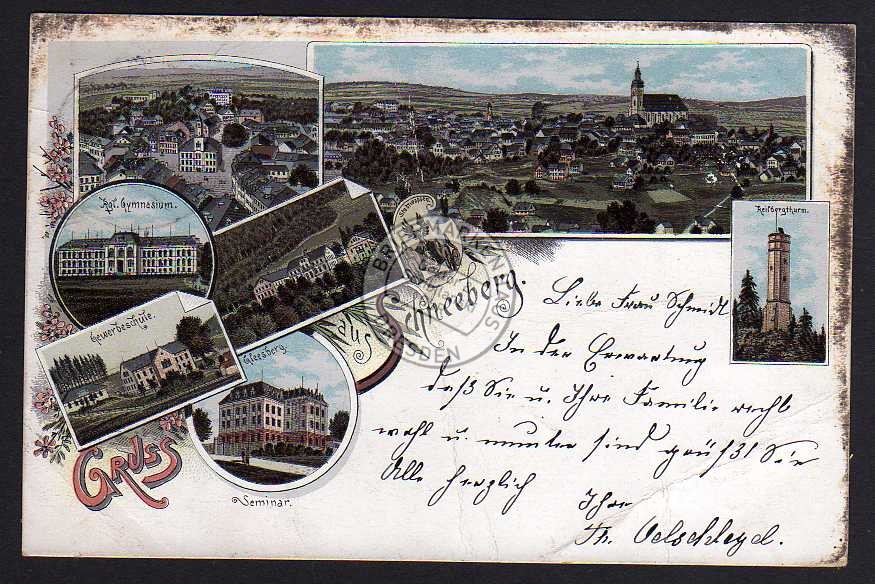 Kgl. Gymnasium.
Gewerbeschule.
Gleesberg.
Seminar.
Keilbergthurm.
Gruss
aus
Schneeberg.
BRIEFMARKENHAUS
DRESDEN
Liebe Frau Schmidt
In der Erwartung
daß Sie u. Ihre Familie recht
wohl u. munter sind grüßt Sie
Alle herzlich
Ihre
Th. Oelschlegel.